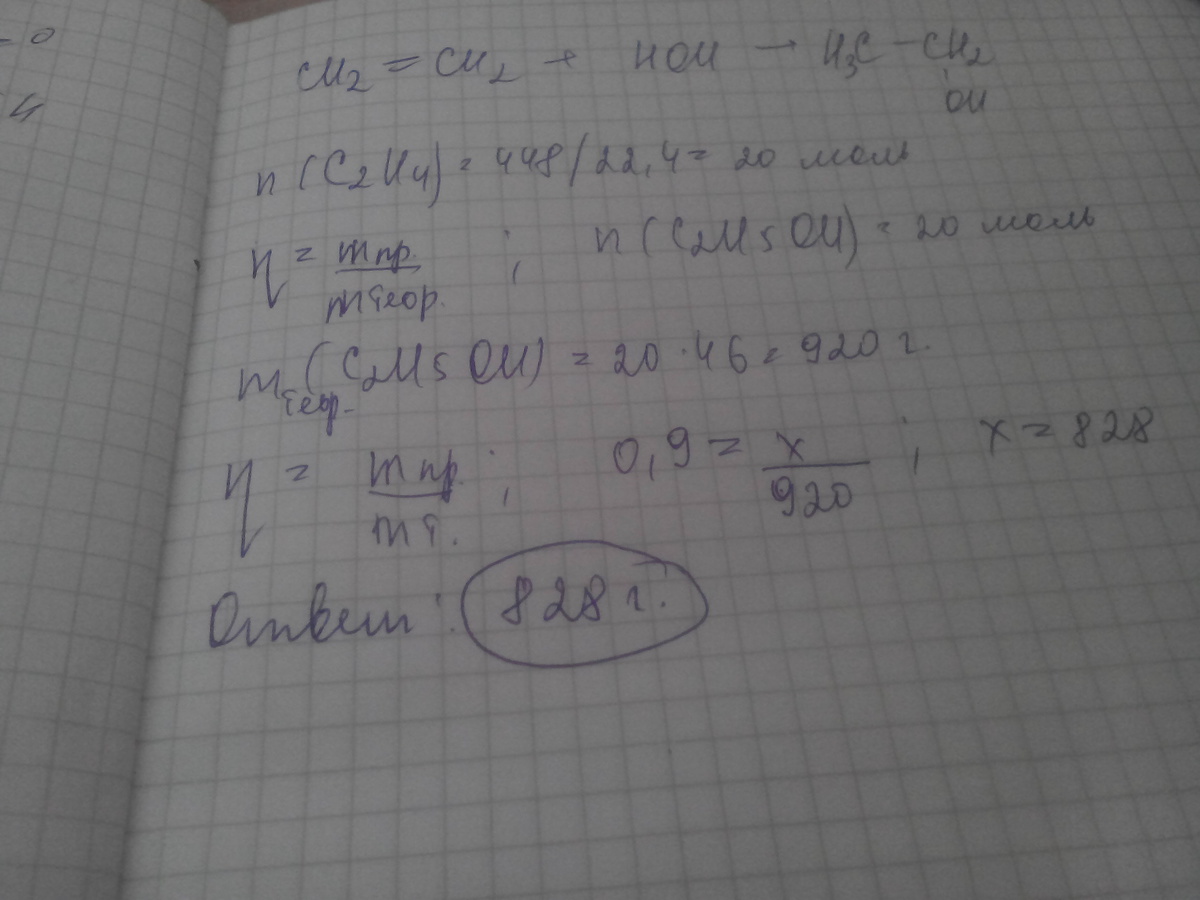 - 0
4
CH2 = CH2 + HOH → H3C - CH2
OH
n (C2H4) = 448/22,4 = 20 моль
η = mпр. / mтеор. ; n (C2H5OH) = 20 моль
mтеор. (C2H5OH) = 20 · 46 = 920 г.
η = mпр. / mт. ; 0,9 = x / 920 ; x = 828
Ответ: 828 г.